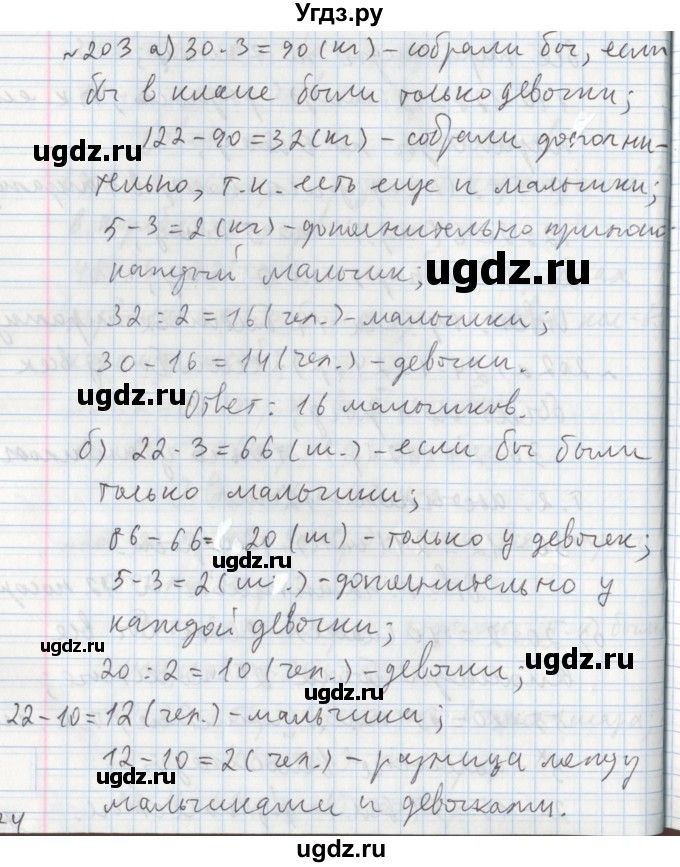 Угдз.ру
№203 а) 30·3=90(кг) – собрали бы, если
бы в класе были только девочки;
122-90=32(кг) – собрали дополни-
тельно, т.к. есть еще и мальчики;
5-3=2(кг) – дополнительно приноси
каждый мальчик;
32:2=16(чел.) – мальчики;
30-16=14(чел.) – девочки.
Ответ: 16 мальчиков.
б) 22·3=66(ш.) – если бы были
только мальчики;
86-66= 20(ш) – только у девочек;
5-3=2(ш.) – дополнительно у
каждой девочки;
20:2=10(чел.) – девочки;
22-10=12(чел.) – мальчики;
12-10=2(чел.) – разница между
мальчиками и девочками.
24
ugdz.ru
ugdz.ru
ugdz.ru
ugdz.ru
ugdz.ru
ugdz.ru
ugdz.ru
ugdz.ru
ugdz.ru
ugdz.ru